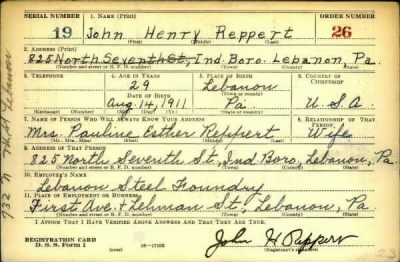 SERIAL NUMBER 1. NAME (Print) ORDER NUMBER
19 John Henry Reppert 26
(First) (Middle) (Last)
2. ADDRESS (Print)
825 North Seventh St., Ind. Boro. Lebanon, Pa.
(Number and street or R. F. D. number) (Town) (County) (State)
3. TELEPHONE 4. AGE IN YEARS 5. PLACE OF BIRTH 6. COUNTRY OF CITIZENSHIP
29 Lebanon
DATE OF BIRTH (Town or county)
Aug. 14, 1911 Pa U.S.A.
(Exchange) (Number) (Mo.) (Day) (Yr.) (State or country)
7. NAME OF PERSON WHO WILL ALWAYS KNOW YOUR ADDRESS 8. RELATIONSHIP OF THAT PERSON
Mrs. Pauline Esther Reppert Wife
(Mr., Mrs., Miss) (First) (Middle) (Last)
9. ADDRESS OF THAT PERSON
825 North Seventh St., Ind Boro, Lebanon, Pa
(Number and street or R. F. D. number) (Town) (County) (State)
10. EMPLOYER'S NAME
Lebanon Steel Foundry
11. PLACE OF EMPLOYMENT OR BUSINESS
First Ave. & Lehman St., Lebanon, Pa.
(Number and street or R. F. D. number) (Town) (County) (State)
I AFFIRM THAT I HAVE VERIFIED ABOVE ANSWERS AND THAT THEY ARE TRUE.
REGISTRATION CARD
D. S. S. Form 1 16—17105 John H Reppert
(Registrant's signature)
23
732 N 7th St Lebanon